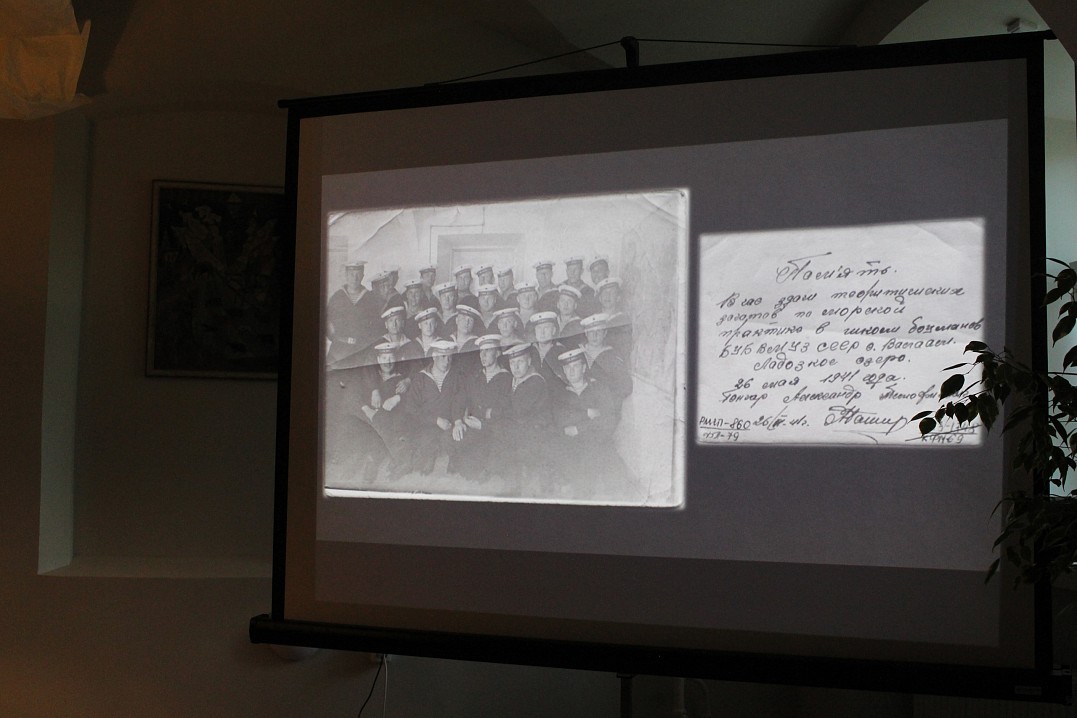 Память.
В час здачи теоритических
зачотов по морской
практике в школе боцманов
БУБ ВМУЗ СССР о. Валаам.
Ладозкое озеро.
26 мая 1941 года.
Гончар Александр
26/V-41г.